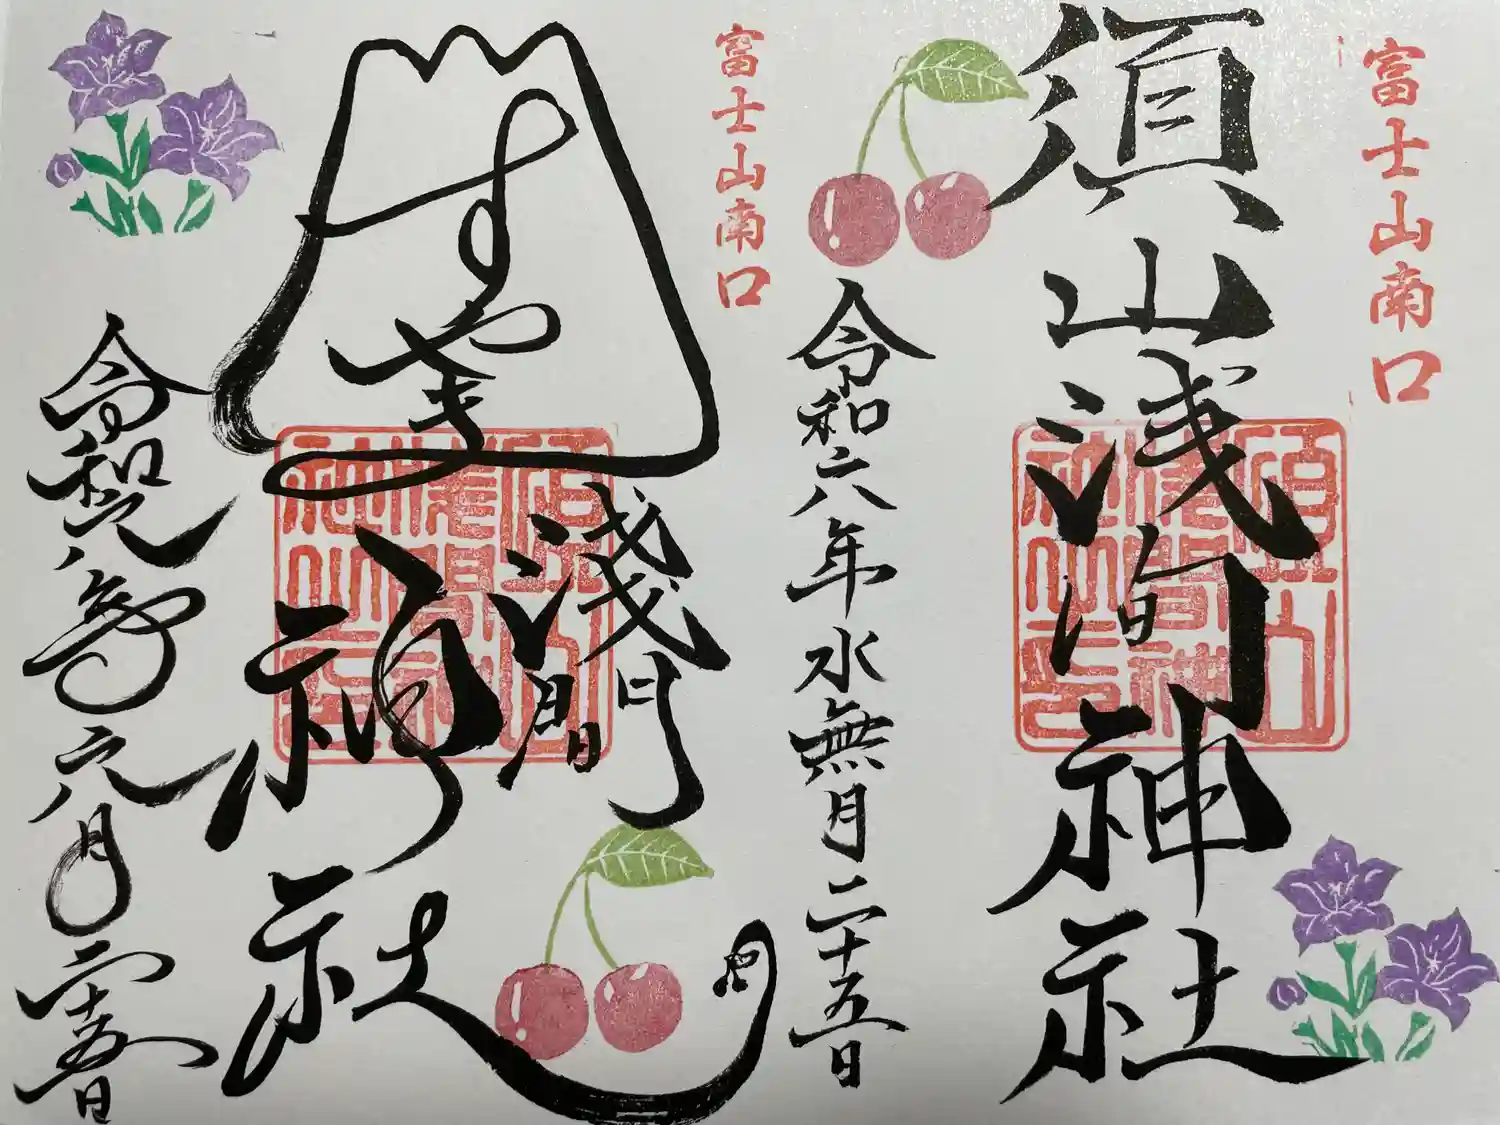 富士山南口
須山浅間神社
令和六年水無月二十五日
富士山南口
すやま
浅間
神社
令和六年六月二十五日